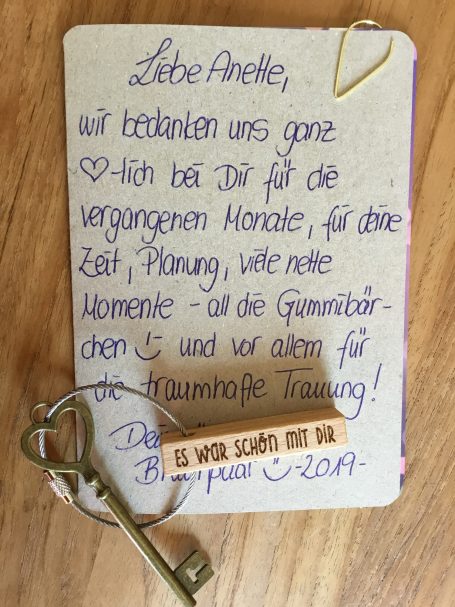 Liebe Anette,
wir bedanken uns ganz
♡-lich bei Dir für die
vergangenen Monate, für deine
Zeit, Planung, viele nette
Momente - all die Gummibär-
chen :) und vor allem für
die traumhafte Trauung!
ES WAR SCHÖN MIT DIR
:) -2019-